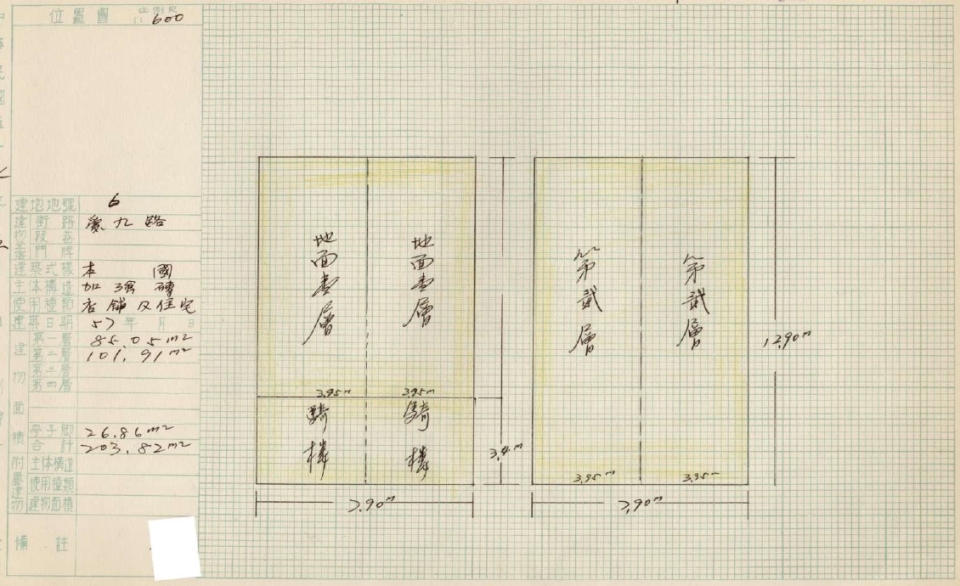 位置圖 比例尺 1:600
建物地號 6
街路 後九路
門牌
建築式樣 本國
主体構造 加強磚
使用種類 店舖及住宅
建築日期 57年 月 日
第一層 85.05m²
第二層 101.91m²
第三層
第四層
建物面積
亭子腳 26.86m²
合計 203.82m²
附屬建物
主体構造
使用種類
建物面積
備註
地面壹層
地面壹層
3.95m
3.95m
騎樓
騎樓
7.90m
3.4m
第貳層
第貳層
3.95m
3.95m
7.90m
12.90m